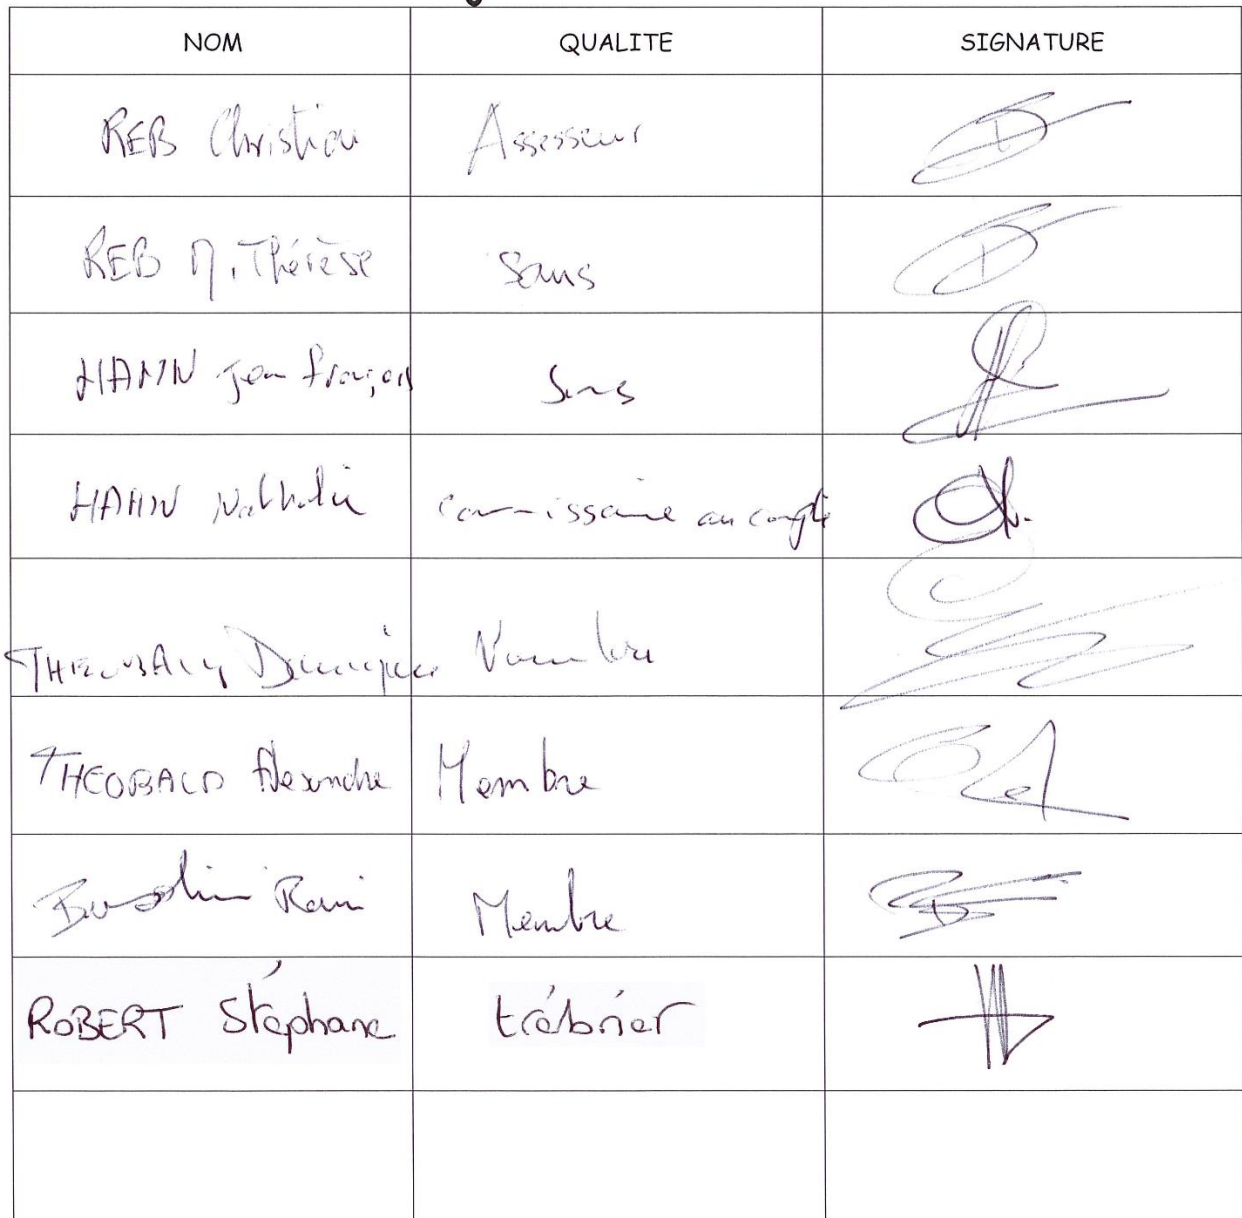 NOM QUALITE SIGNATURE
REB Christian Assesseur
REB M. Thérèse Sans
HAHN Jean François Sans
HAHN Nathalie commissaire au compte
THEOBALD Membre
THEOBALD Alexandre Membre
Membre
ROBERT Stéphane trésorier